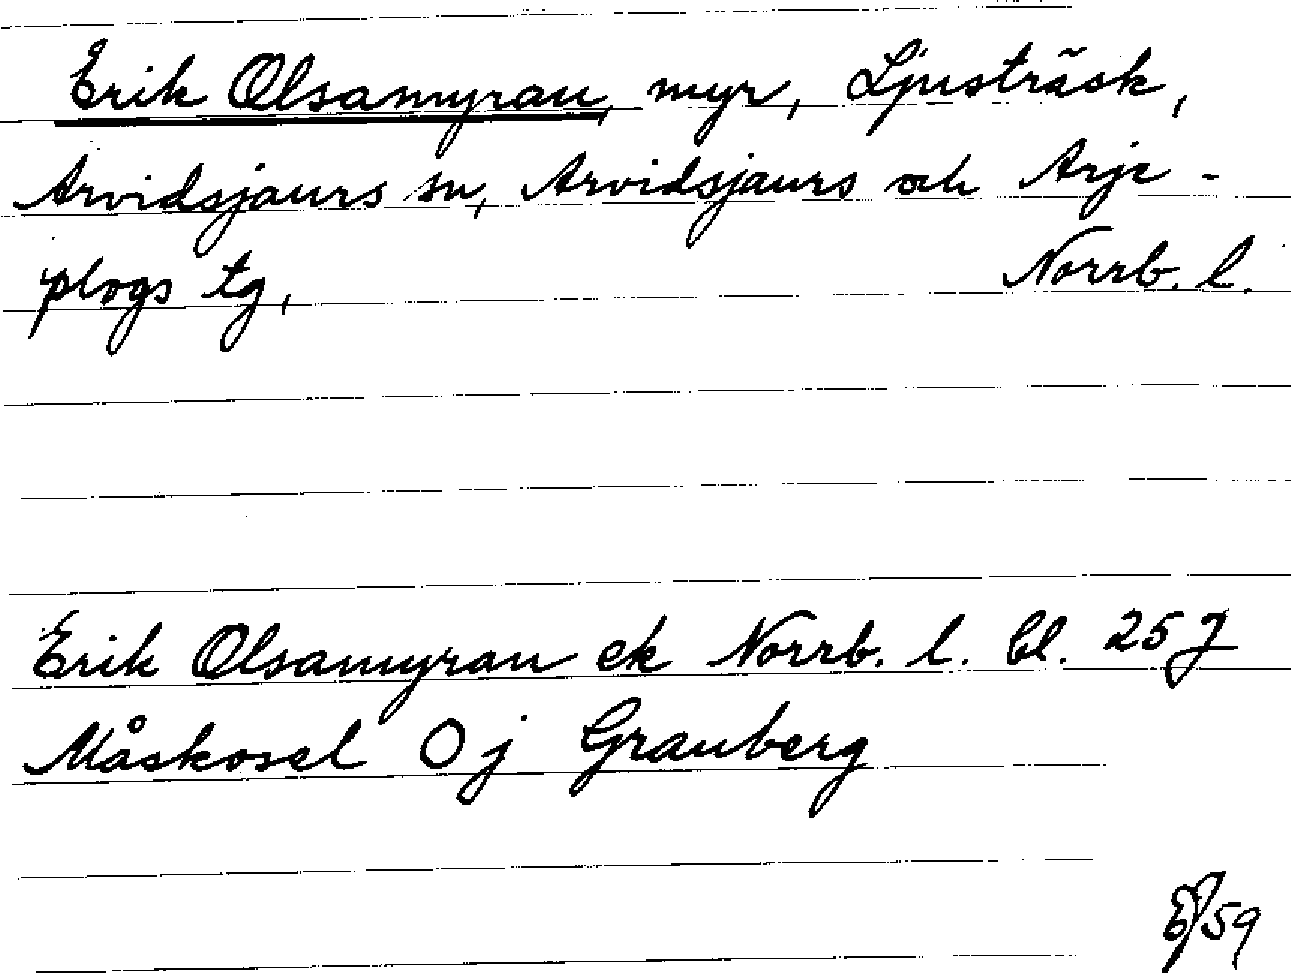 Erik Olsamyran, myr, Ljusträsk,
Arvidsjaurs sn, Arvidsjaurs och Arje-
plogs tg, Norrb. l.
Erik Olsamyran ek Norrb. l. bl. 25 J
Måskosel Oj Granberg
/59